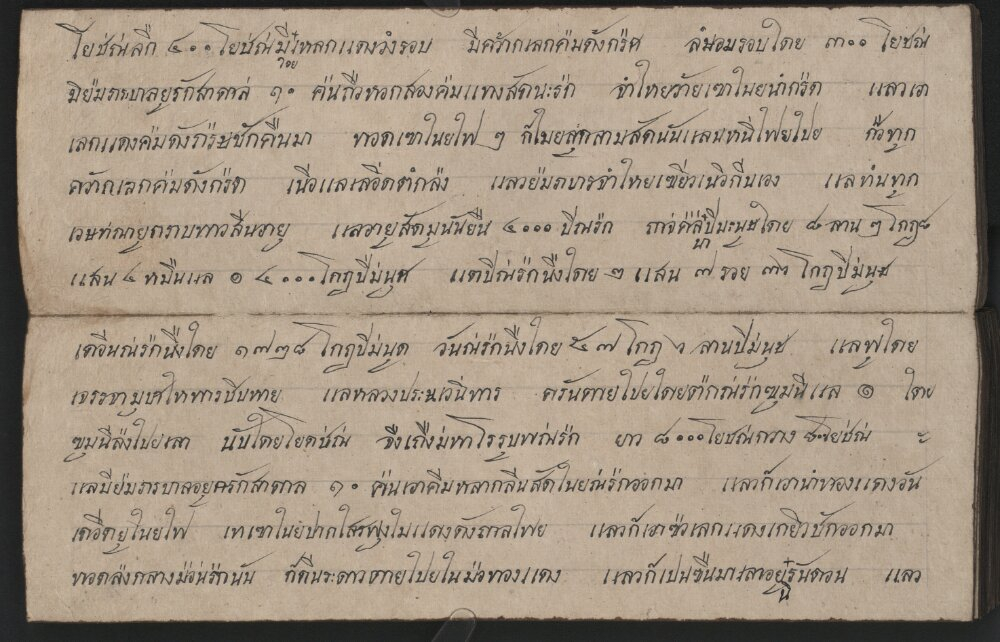 โยชณลึก ๔๐๐ โยชณมีเหลกแดงวํรอบ มีครักเลกคํมดังกริศ ลํมอมรอบโดย ๓๐๐ โยชณ
มิยํมภรบาลยูรักสาตาล ๑๐ คํนถืวหอกสองคํมแทงสัดนะรัก จำไหยวํายเขาในยนำกริด แลวเภ
เลกแดงคํมดังกริษชักคืนมา ทอดเขาในยไฟ ๆ ก็ไมยสุดลามสัดนันแลนหนีไฟยไปย ก็วทูก
ครักเลกคํมดังกริด เนืวแลเลือดตํกลํง แลวยํมภบารจำไหยเขียวเนิวกีนเอง แลทํนทูก
เวษทํณายูดราบทาวสืนอายุ แลอายูสัดมูนันยืน ๔๐๐๐ ปีณรัก โดย ๘ ลาน ๆ โกฏ๘
แสน ๔ หมืนแล ๑ ๔๐๐๐ โกฏปีมํนุศ แดปีณรักนืงโดย ๑ แสน ๗ รอย ๓๖ โกฏปีมํนุษ
เดือนณรักนืงโดย ๑๗๒๘ โกฏปีมํนุด วันณรักนืงโดย ๕๗ โกฏ ๖ ลานปีมํนุษ แลผูโดย
เจรจามุษาไหทารชีบหาย แลหลวงประเวนิทาร ครันตายไปยโดยตํกณรักขูมนีแล ๑ โดย
ขูมนีลํงไปยเลา นับโดยโยดชณ จืงเถืงมํหาโรรูบพณรัก ยาว ๘๐๐๐ โยชณกวาง โยชณ
แลมียํมภรบาลอยูครักสาตาล ๑๐ คํนเอาคีมหลากลีนสัดในยณรักออกมา แลวก็เอานำทองแดงอัน
เดือดยูในยไฟ เทเขาในยปากใสพูงไมแดงดังถาลไฟย แลวก็เอาขัวเลกแดงเกยีวชักออกมา
ทอดลํงกลางมํอณรักนัน ก็ดีนระดาวตายไปยในมํอทองแดง แลวก็เปนขืนมาเลาอยูรืนันดอน แลว